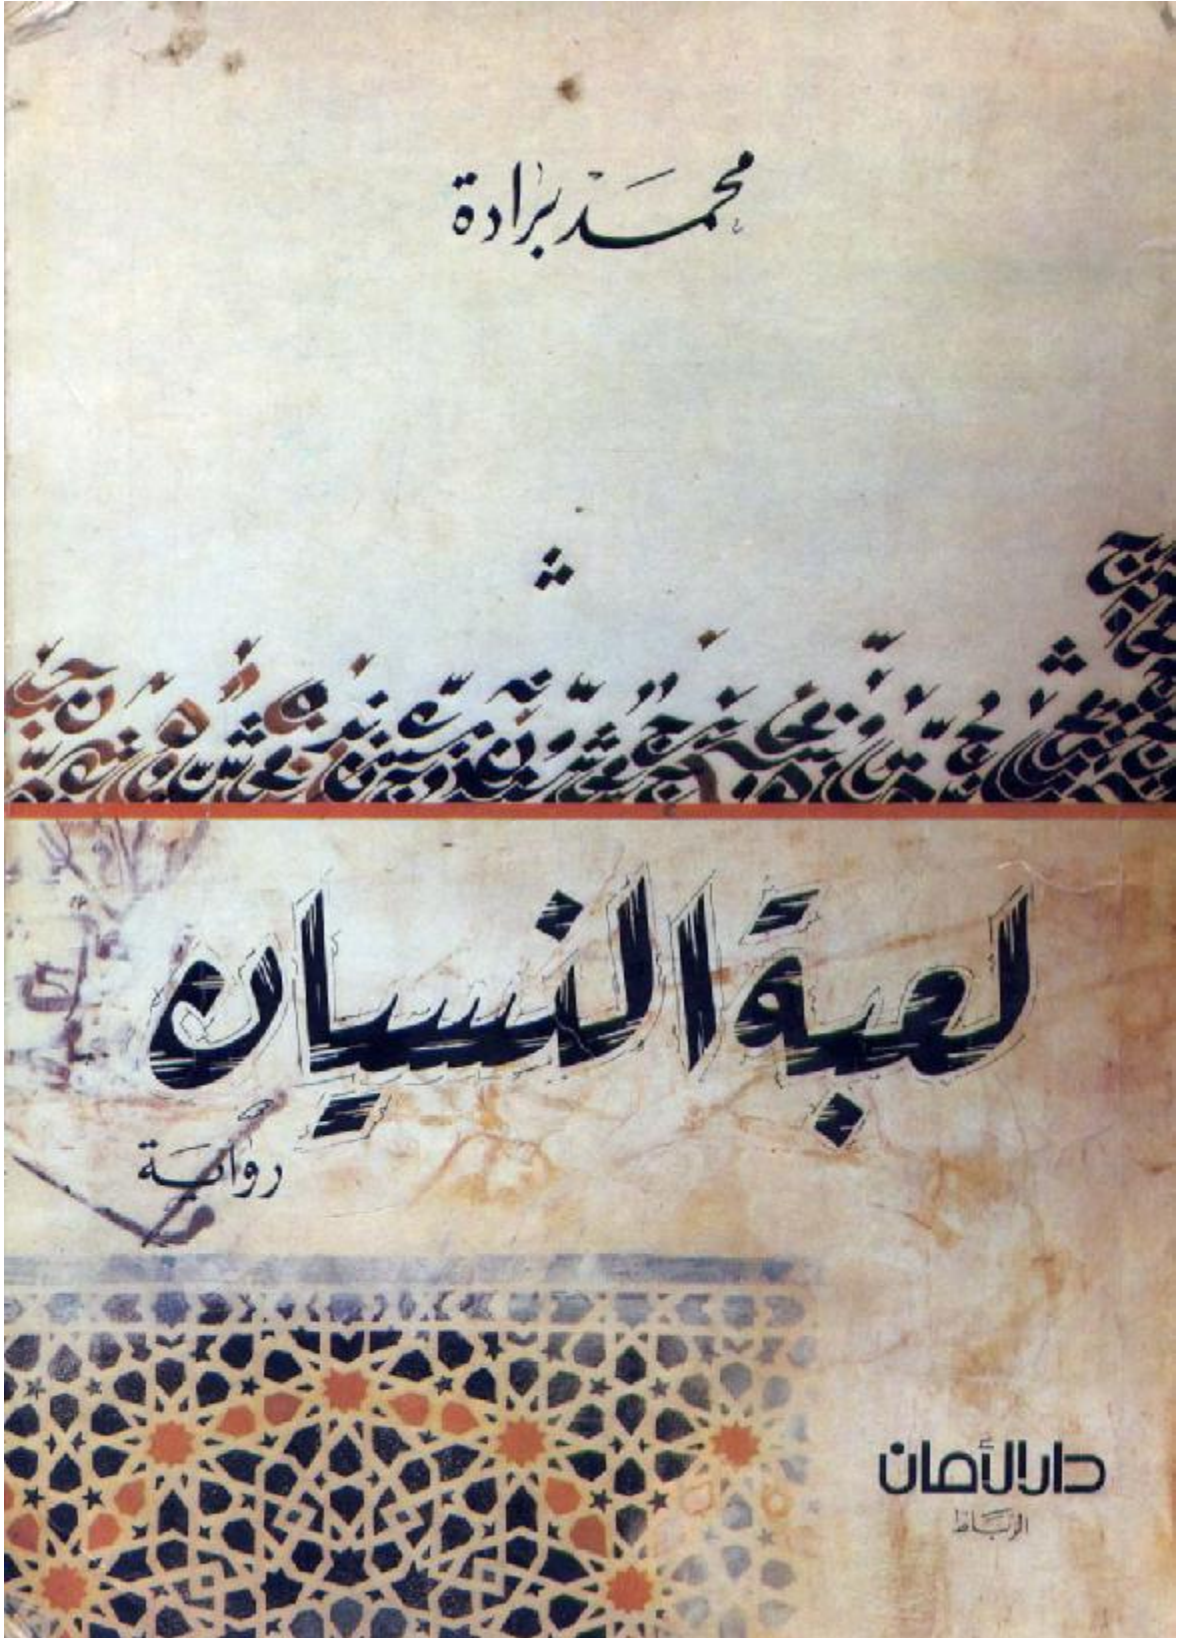 محمد برادة
لعبة النسيان
رواية
دار الأمان
الرباط